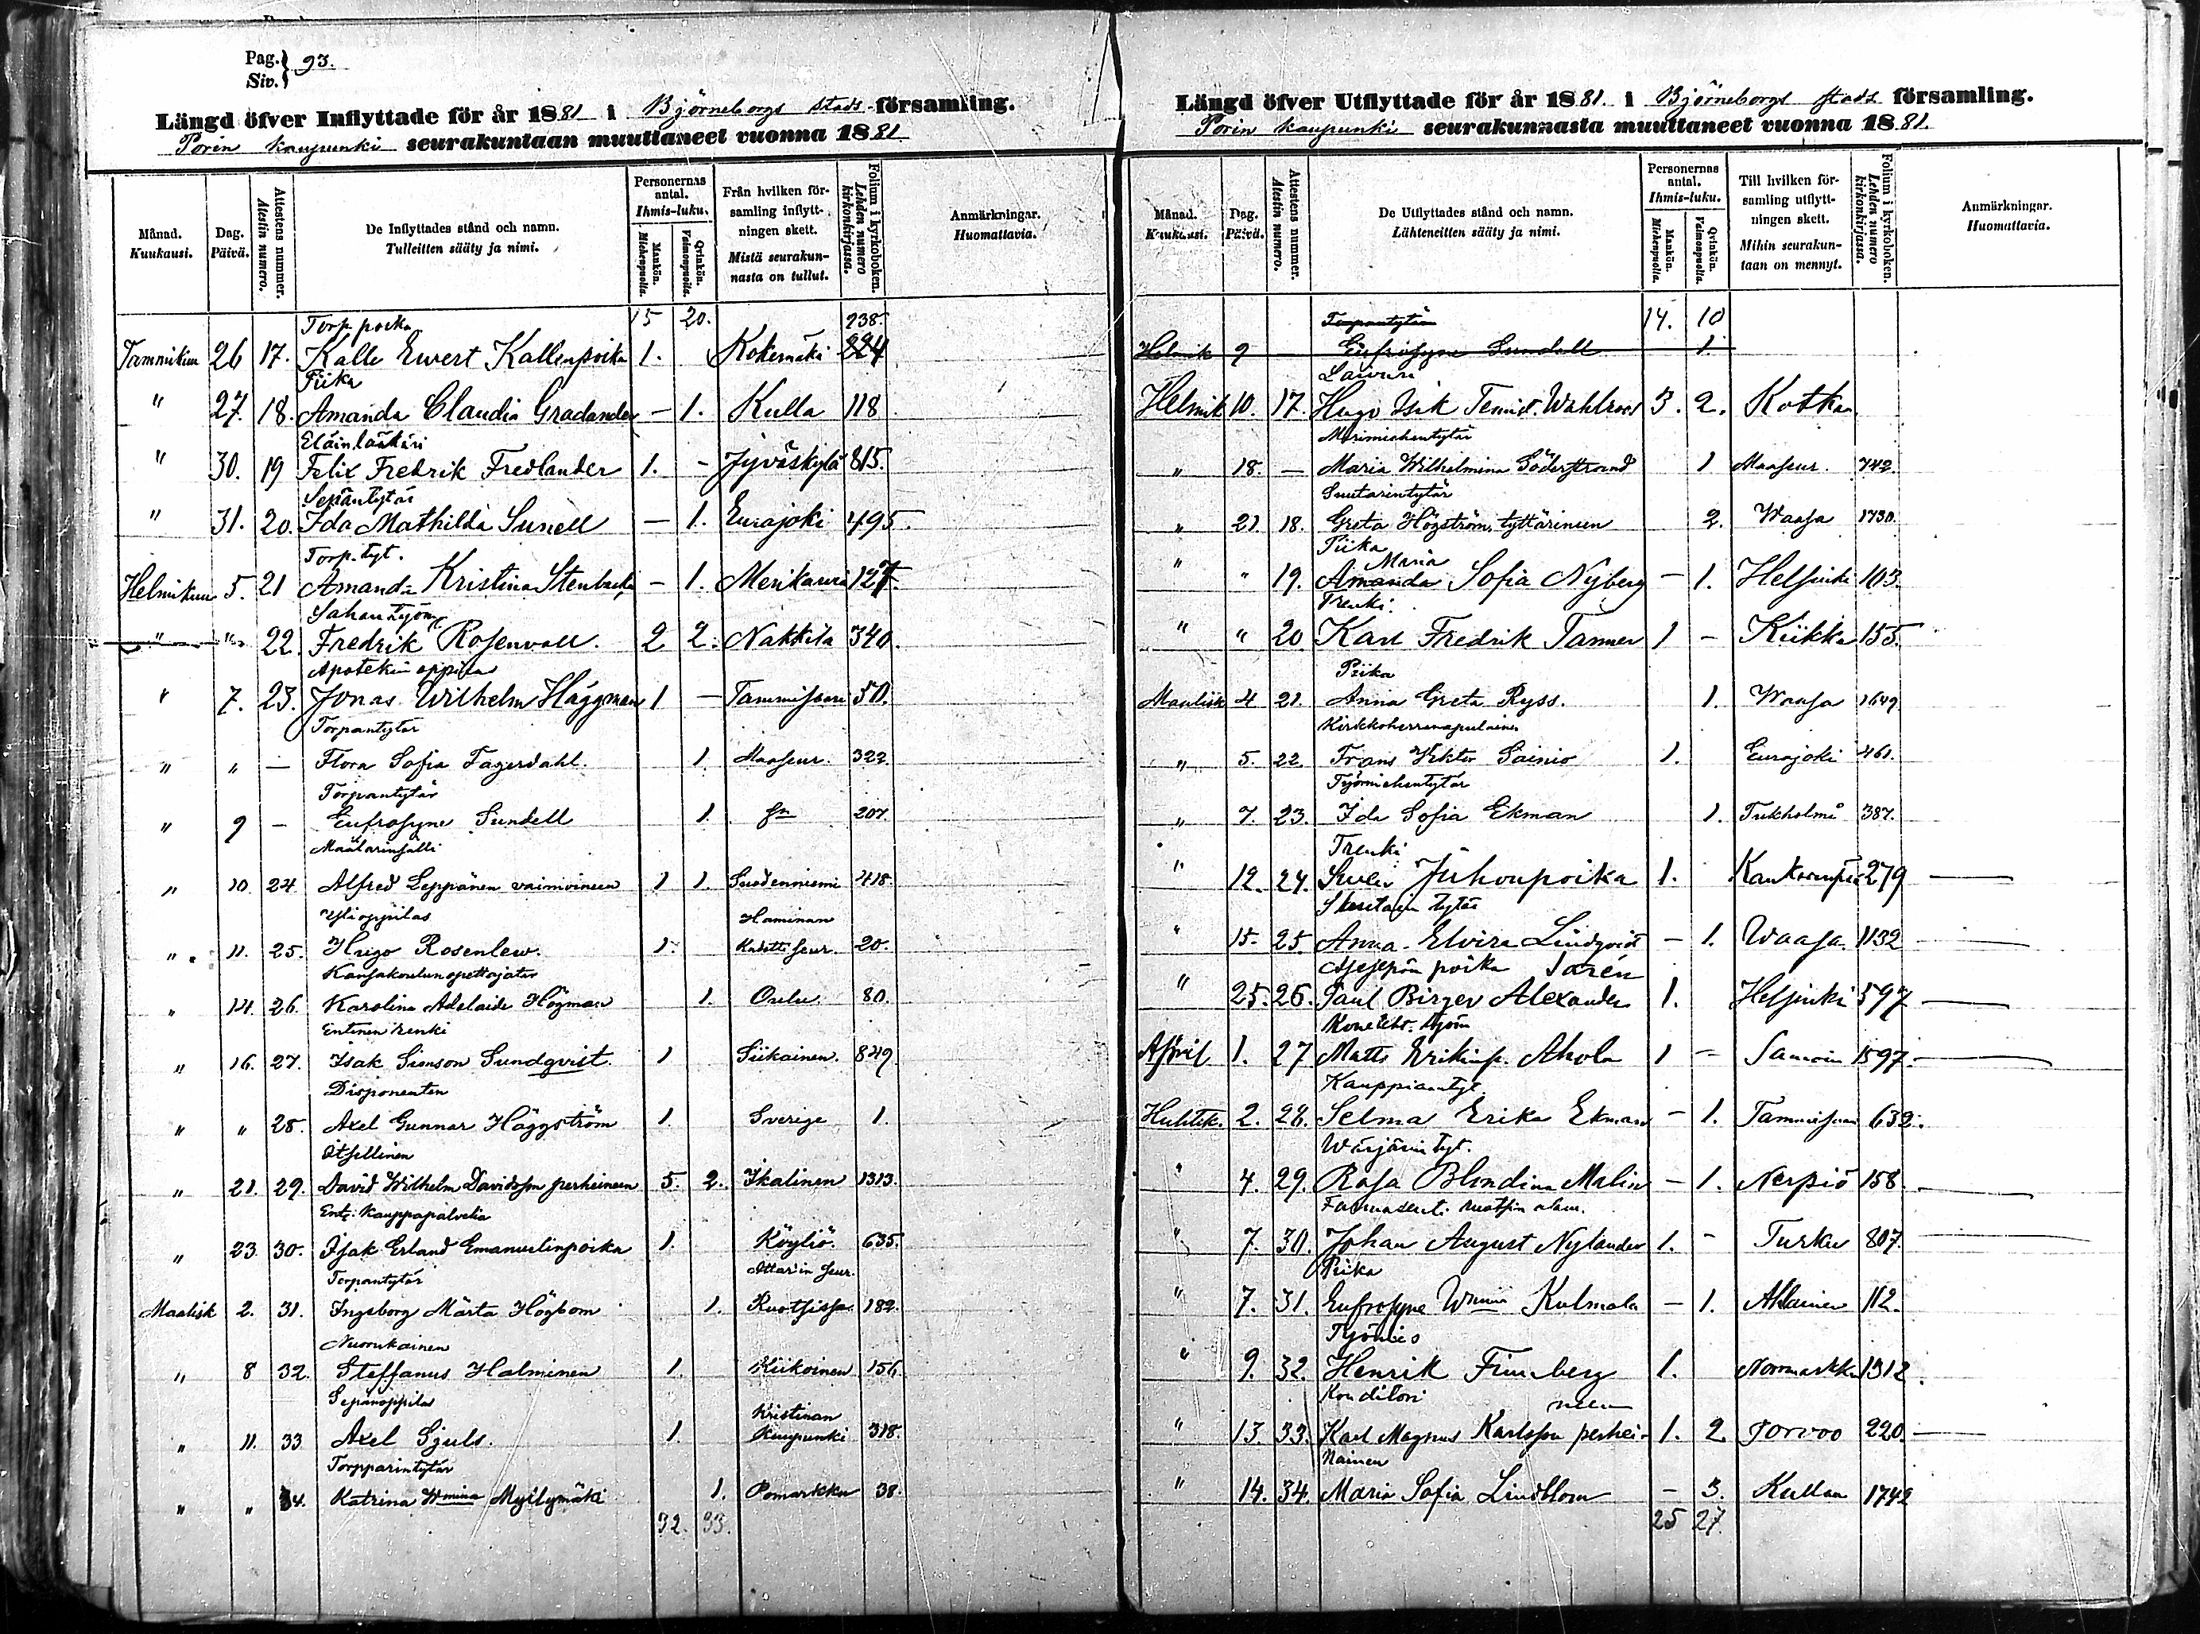 Pag. } 93.
Siv.
Längd öfver Inflyttade för år 1881 i Björneborgs stads församling.
Porin kaupunki seurakuntaan muuttaneet vuonna 1881
Månad. Kuukausi.
Dag. Päivä.
Attestens nummer. Atestin numero.
De Inflyttades stånd och namn. Tulleitten sääty ja nimi.
Personernas antal. Ihmis-luku.
Mankön. Miehenpuolia.
Qvinkön. Vaimonpuolia.
Från hvilken församling inflyttningen skett. Mistä seurakunnasta on tullut.
Folium i kyrkoboken. Lehden numero kirkonkirjassa.
Anmärkningar. Huomattavia.
15 20.
Torp. poika 238.
Tammikuu 26 17. Kalle Ewert Kallenpoika 1. Kokemäki 224
Piika
" 27. 18. Amanda Claudia Gradander — 1. Kulla 118
Eläinlääkäri
" 30. 19 Felix Fredrik Fredlander 1. - Jyväskylä 815.
Sepäntytär
" 31. 20. Ida Mathilda Sunell — 1. Eurajoki 495.
Torp. tyt.
Helmikuu 5. 21 Amanda Kristina Stenbacka — 1. Merikarvia 127.
Sahantyöm.
" " 22. Fredrik Rosenvall. 2 2. Nakkila 340.
Apotekin oppilas
" 7. 23. Jonas Wilhelm Häggman 1 — Tammisaari 50.
Torpantytär
" " — Flora Sofia Fagerdahl. 1. Maaseur. 322
Torpantytär
" 9 - Eufrosyne Sundell 1. 207.
Maalarinsälli
" 10. 24. Alfred Leppänen vaimoineen 1 1. Suodenniemi 418.
Ylioppilas Haminan
" 11. 25. Hugo Rosenlew. 1. Kadetti seur. 20.
Kansakoulunopettajatar
" 14. 26. Karolina Adelaide Högman 1. Oulu 80.
Entinen renki
" 16. 27. Isak Simson Sundqvist. 1 Siikainen. 849.
Disponenten
" " 28. Axel Gunnar Häggström 1. Sverige 1.
Itsellinen
" 21. 29. David Wilhelm Davidsson perheineen 5. 2. Ikalinen 1313.
Ent. kauppapalvelia
" 23. 30. Isak Erland Emanuelinpoika 1. Köyliö. 635.
Torpantytär Attarin seur.
Maalisk 2. 31. Ingeborg Märta Högbom 1. Ruotsissa. 182.
Nuorukainen
" 8 32. Steffanus Halminen 1. Kiikoinen 156.
Sepänoppilas Kristinan
" 11. 33 Axel Sjuls. 1. Kaupunki 318.
Torpparintytär
" " 34. Katrina Wmina Myllymäki 1. Pomarkku 38.
32. 33.
Längd öfver Utflyttade för år 1881. i Björneborgs stads församling.
Porin kaupunki seurakunnasta muuttaneet vuonna 1881.
Månad. Kuukausi.
Dag. Päivä.
Attestens nummer. Atestin numero.
De Utflyttades stånd och namn. Lähteneitten sääty ja nimi.
Personernas antal. Ihmis-luku.
Mankön. Miehenpuolia.
Qvinkön. Vaimonpuolia.
Till hvilken församling utflyttningen skett. Mihin seurakuntaan on mennyt.
Folium i kyrkoboken. Lehden numero kirkonkirjassa.
Anmärkningar. Huomattavia.
Torpantytär 14. 10
Helmik 9 Eufrosyne Sundell 1.
Laivuri
Helmik 10. 17. Hugo Isik Temist. Wahlroos 3. 2. Kotka
Merimiehentytär
" 18. — Maria Wilhelmina Söderstrand 1 Maaseur. 742.
Suutarintytär
" 21. 18. Greta Högström tyttärineen 2. Waasa 1730.
Piika Maria
" " 19. Amanda Sofia Nyberg — 1. Helsinki 103.
Trenki.
" " 20 Karl Fredrik Tanner 1 — Kiikka 155.
Piika
Maalisk 4 21. Anna Greta Ryss. 1. Waasa 1649
Kirkkoherranapulainen
" 5. 22. Frans Viktor Sainio 1. Eurajoki 461.
Työmiehentytär
" 7. 23. Ida Sofia Ekman 1. Tukholma 387.
Trenki
" 12. 24. Juhonpoika 1. 279 —
tytär
" 15. 25. Anna Elvira Lindqvist — 1. Waasa. 1132
poika Sarén
" 25. 26. Paul Birger Alexander 1. Helsinki 597 —
April 1. 27 Matts Erikinp. Ahola 1 - 1597. —
Kauppiaantyt.
Huhtik. 2. 28. Selma Erika Ekman — 1. Tammisaari 632.
Wärjärin tyt.
" 4. 29. Rosa Blondina Malin — 1. Nerpiö 158. —
" 7. 30. Johan August Nylander 1. - Turku 807. —
Piika
" 7. 31. Eufrosyne Wmina Kulmala — 1. Ahlainen 112.
Työmies
" 9. 32. Henrik Finnberg 1. Normarkku 1312.
Konditori neen
" 13. 33. Karl Magnus Karlsson perhei- 1. 2. Porvoo 220. —
Nainen
" 14. 34. Maria Sofia Lindblom — 3. Kullaa 1742
25 27.